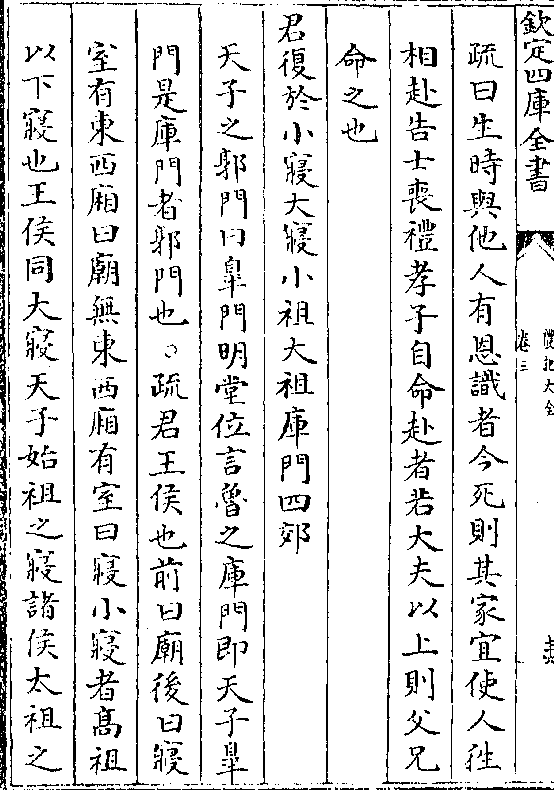 欽定四庫全書
禮記大全
卷三
疏曰生時與他人有恩識者今死則其家宜使人往
相赴告士喪禮孝子自命赴者若大夫以上則父兄
命之也
君復於小寢大寢小祖大祖庫門四郊
天子之郭門曰臯門明堂位言魯之庫門即天子臯
門是庫門者郭門也○疏君王侯也前曰廟後曰寢
室有東西廂曰廟無東西廂有室曰寢小寢者髙祖
以下寢也王侯同大寢天子始祖之寢諸侯太祖之